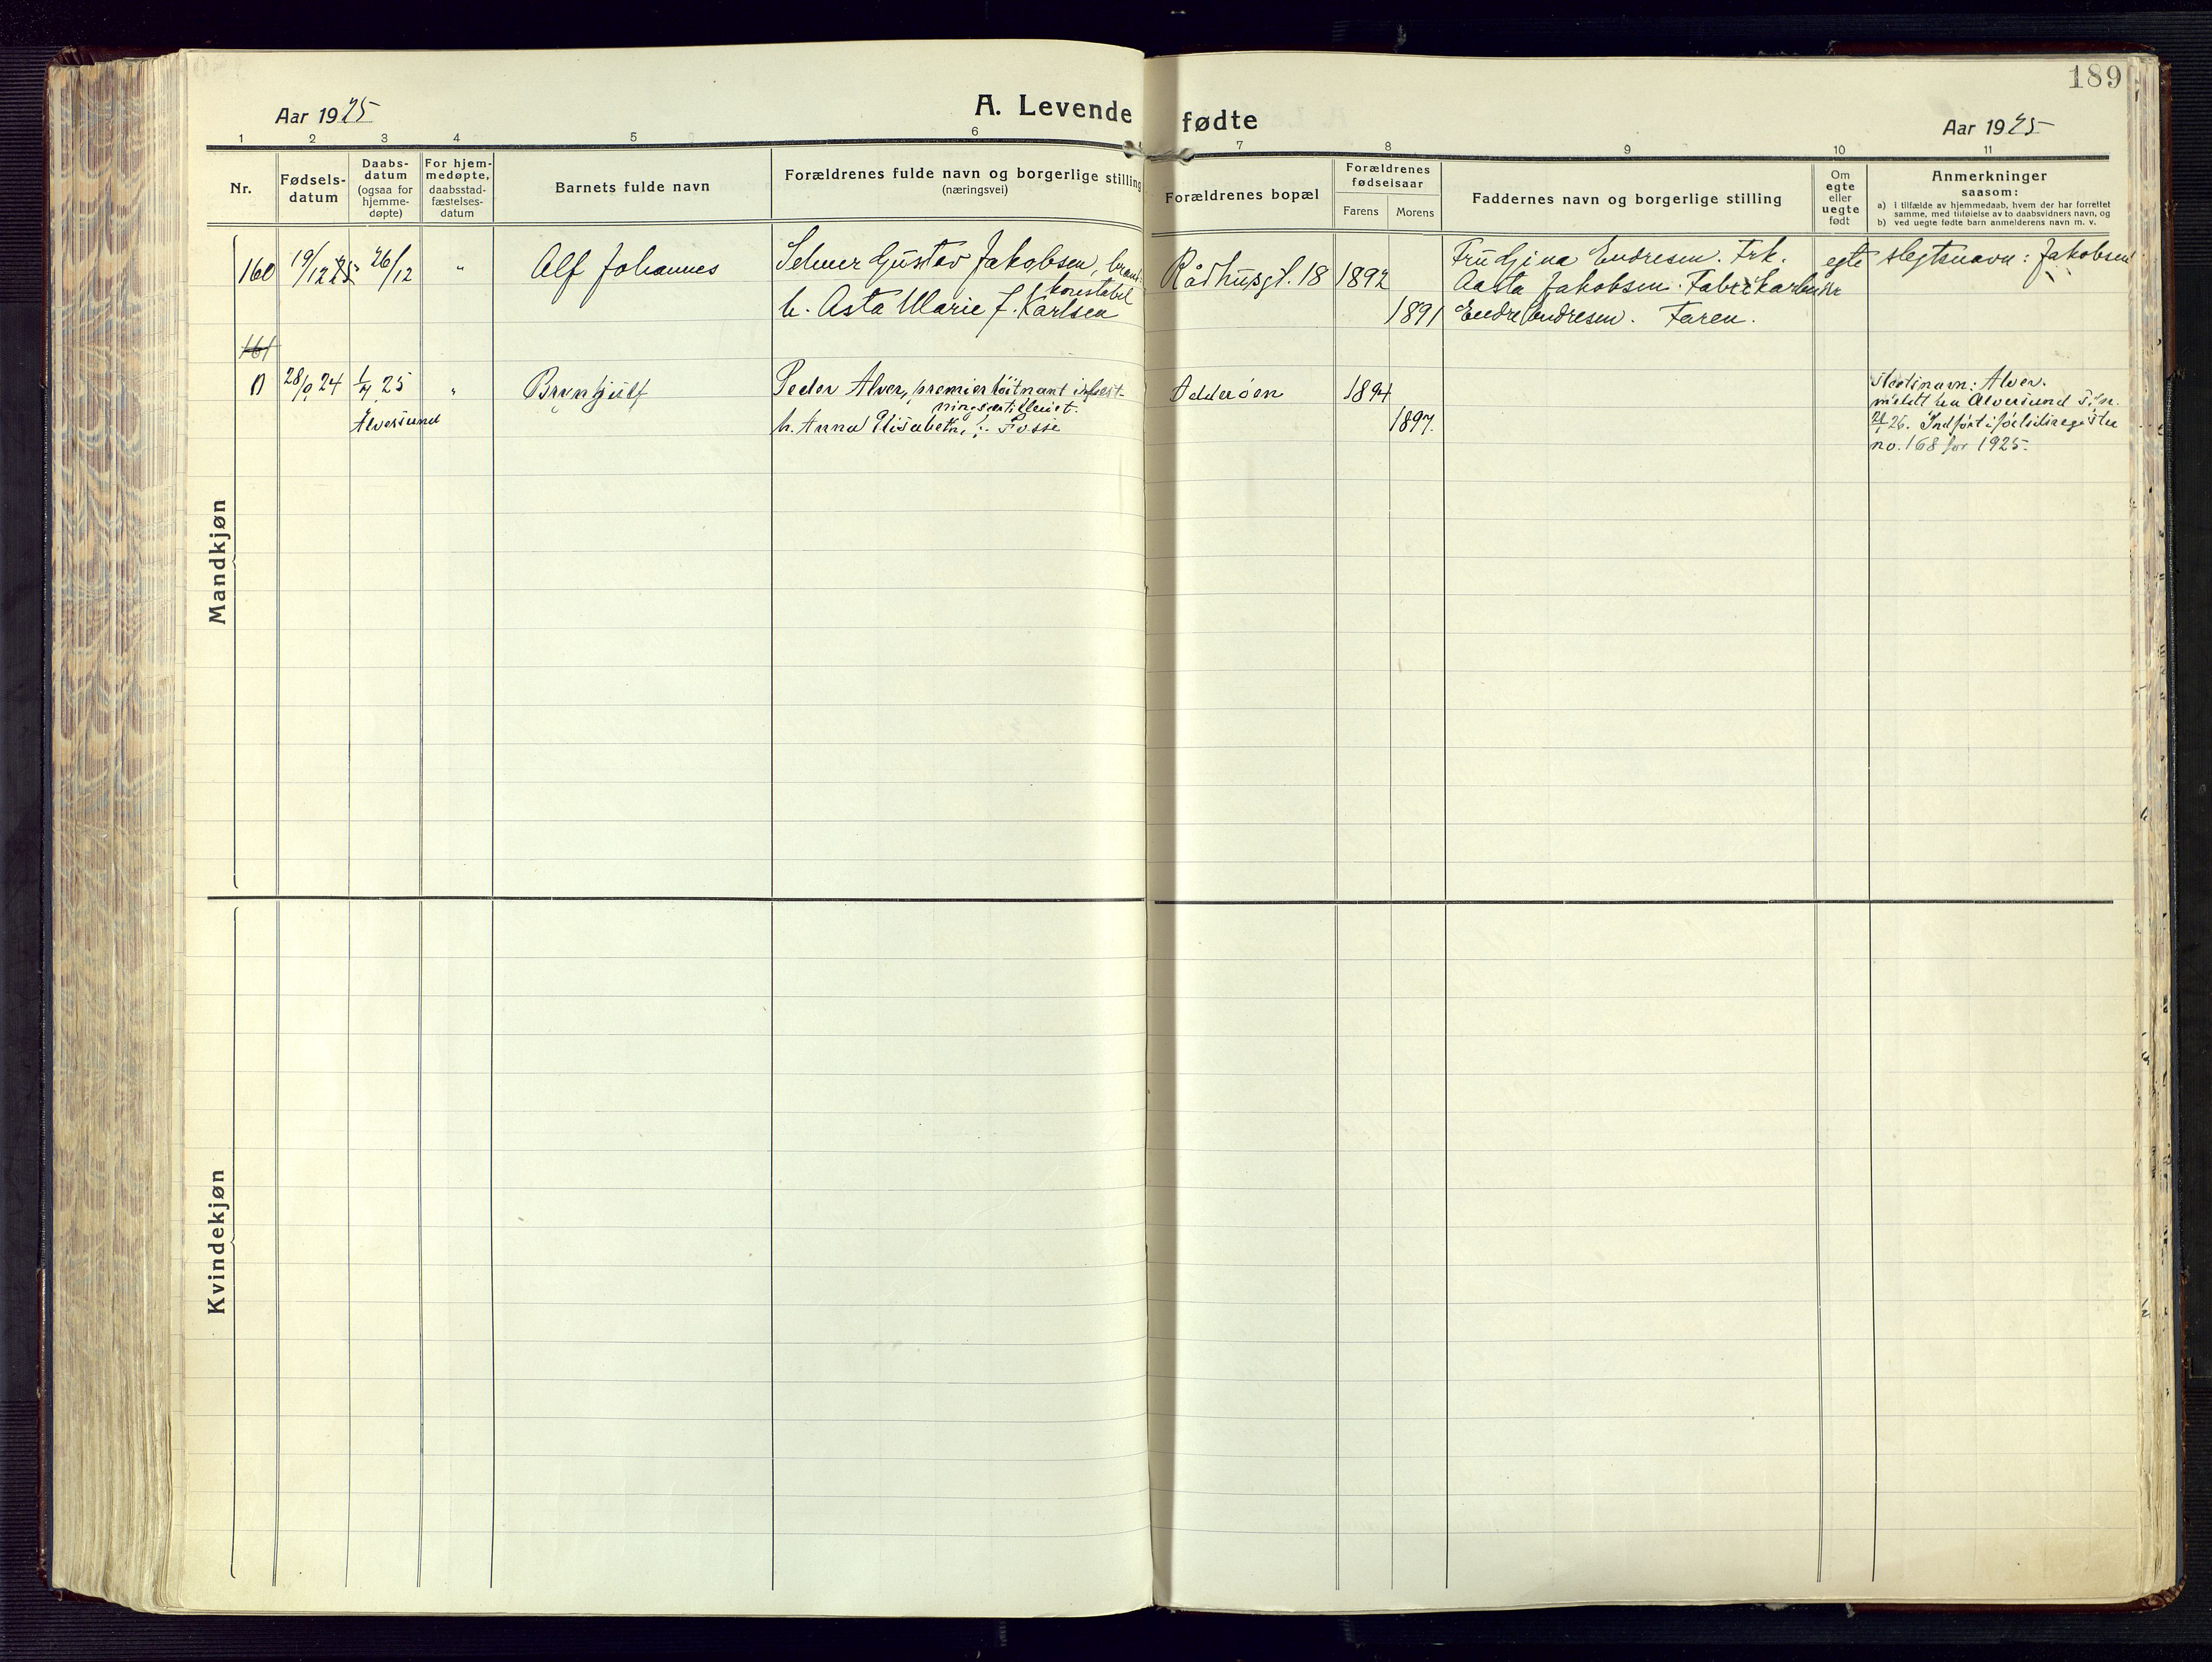 189
Aar 1925
A. Levende fødte
Aar 1925
1 2 3 4 5 6 7 8 9 10 11
Nr.
Fødsels-
datum
Daabs-
datum
(ogsaa for
hjemme-
døpte)
For hjem-
medøpte,
daabsstad-
fæstelses-
datum
Barnets fulde navn
Forældrenes fulde navn og borgerlige stilling
(næringsvei)
Forældrenes bopæl
Forældrenes
fødselsaar
Farens Morens
Faddernes navn og borgerlige stilling
Om
egte
eller
uegte
født
Anmerkninger
saasom:
a) I tilfælde av hjemmedaab, hvem der har forrettet
samme, med tilføielse av to daabsvidners navn, og
b) ved uegte fødte barn anmelderens navn m. v.
Mandkjøn
160 19/12 25 26/12 " Alf Johannes
Selmer Gustav Jakobsen, brand-
konstabel
h. Asta Marie f. Karlsen
Rådhusgt. 18 1892
1891
Fru Gina Endresen. Frk.
Aasta Jakobsen. Fabrikarbeider
Endre Endresen. Faren.
egte slegtsnavn: Jakobsen
161
0 28/9 24 1/4 25 " Brynhjulf
Alversund
Peder Alver, premierløitnant i fæst-
ningsartilleriet.
h. Anna Elisabeth, f. Fosse
Odderøen 1894
1897.
Slektsnavn: Alver.
meldt fra Alversund
26. Indført i fødselsregister
no. 168 for 1925.
Kvindekjøn